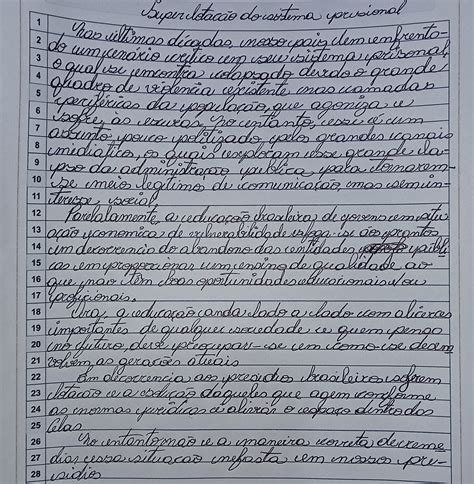 Super lotação do sistema prisional
1 Nas últimas décadas, nosso país tem enfrenta-
2 do um cenário crítico em seu sistema prisional,
3 o qual se encontra colapsado devido o grande
4 quadro de violencia existente nas camadas
5 periféricas da população, que agoniza e
6 sofre, às escuras. No entanto, esse é um
7 assunto pouco politizado pelos grandes canais
8 midiáticos, os quais exploram esse grande
9 da administração pública para tornarem-
10 se meio legítimos de comunicação mas sem in-
11 teresse social.
12 Paralelamente, a educação brasileira de jovens em situ
13 ação economica de vulnerabilidade aos prantos
14 um decorrencia do abandono das entidades públi
15 cas em proporcionar um ensino de qualidade ao
16 que não têm boas oportunidades educacionais e/ou
17 proficionais.
18 Ora, a educação anda lado a lado com alicerces
19 importantes de qualquer sociedade e quem pensa
20 no futuro, deve preocupar-se em como se desen
21 volvem as gerações atuais
22 Em decorrencia aos presidios brasileiros sofrem
23 lotação e a daqueles que agem conforme
24 as normas jurídicas é alivrar o espaço dentro das
25 celas
26 No entanto não é a maneira correta de reme
27 diar essa situação nefasta em nossos pre-
28 sidios